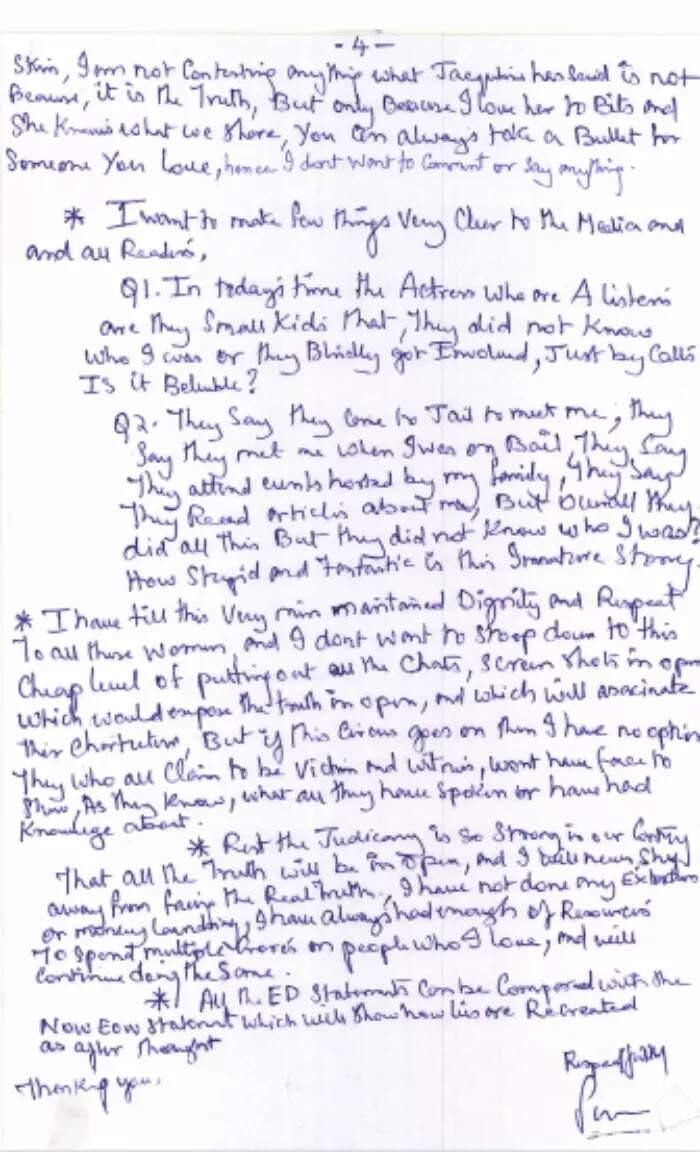 - 4 -
Skin, I am not Contesting anything what Jacqueline has Said is not
Because, it is the Truth, But only Because I love her to Bits and
She Knows what we share, You Can always take a Bullet for
Someone You Love, hence I dont want to Comment or Say anything.
* I want to make few things Very Clear to the Media and
and all Readers,
Q1. In today's time the Actress who are A listers
are they Small Kids that, They did not Know
who I was or they Blindly got Involved, Just by Calls
Is it Beleible?
Q2. They Say they Come to Jail to meet me, they
Say they met me when I was on Bail, They Say
They attend events hosted by my family, They Say
They Read articles about me, But overall they
did all This But they did not Know who I was?
How Stupid and Fantastic is this Immature Story.
* I have till this Very min maintained Dignity and Respect
To all these Women, and I dont want to stoop down to this
Cheap level of putting out all the Chats, Screen Shots in open
which would expose the truth in open, and which will asacinate
their Charecture, But if this Circus goes on then I have no option
They who all Claim to be Victim and witness, wont have face to
Show, As they Know, what all they have Spoken or have had
Knowlege about.
* Rest the Judicary is so Strong in our Contry
That all the Truth will be in open, and I will never Shy
away from facing the Real Truth, I have not done any Extortion
or money laundring, I have always had enough of Resources
To Spend multiple on people who I love, and will
Continue doing the Same.
* All the ED Statements Can be Compared with the
Now Eow statement which will show how lies are Recreated
as after thought
Thanking you.
Respectfully